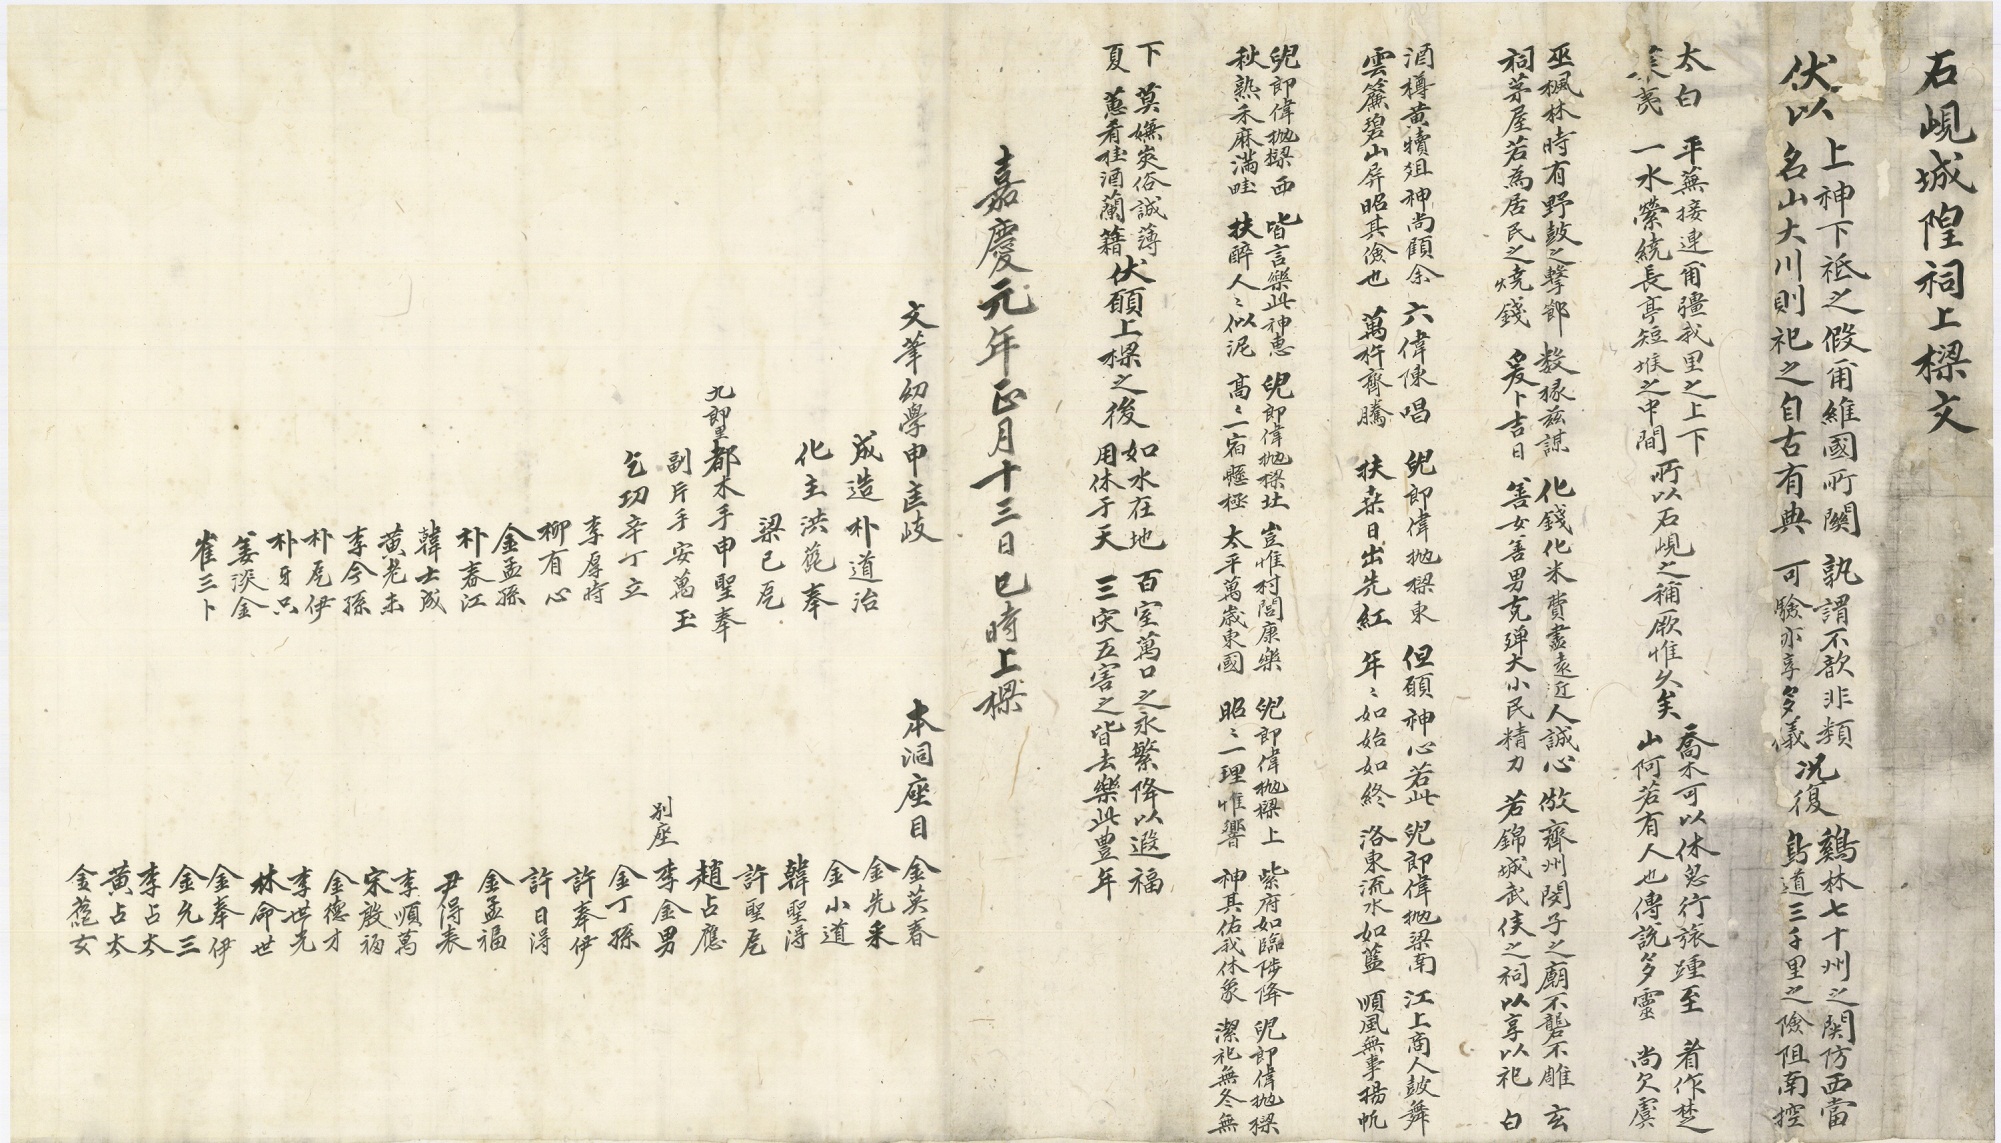 石峴城隍祠上樑文
伏以
上神下祗之假甭維國所關
名山大川則祀之自古有典
孰謂不歆非類
可驗亦享多儀
况復
鷄林七十州之関防西當
鳥道三千里之險阻南控
太白
夷
平蕪接連甫疆我里之上下
一水縈繞長亭短堠之中間
所以石峴之稱厥惟久矣
喬木可以休息行旅踵至
山阿若有人也傳説多靈
着作楚
尚欠虞
巫楓林時有野鼓之擊節
祠茅屋若為居民之燒錢
数椽玆謀
爰卜吉日
化錢化米費盡遠近人誠心
善女善男克殫大小民精力
倣齊州閔子之廟不礱不雕
若錦城武侯之祠以享以祀
玄
白
酒樽黄犢俎神尚顧余
雲簾碧山屏昭其儉也
六偉陳唱
萬杵齊騰
兒郎偉抛樑東
扶桒日出先紅
但願神心若此
年〻如始如終
兒郎偉抛梁南
洛東流水如藍
江上商人鼓舞
順風無事揚帆
兒郎偉抛樑西
秋熟禾麻滿畦
皆言樂此神惠
扶醉人〻似泥
兒郎偉抛樑北
高〻一宿懸極
豈惟村閭康樂
太平萬歳東國
兒郎偉抛樑上
昭〻一理惟響
紫府如臨陟降
神其佑我休象
兒郎偉抛樑
潔祀無冬無
下
夏
莫嫌炎俗誠薄
蕙肴桂酒蘭籍
伏願上樑之後
如水在地
用休于天
百室萬口之永繁降以遐福
三灾五害之皆去樂此豊年
嘉慶元年正月十三日巳時上樑
文筆幼學申匡岐
成造朴道治
化主洪㐘奉
梁已巵
九郎里
都木手申聖奉
副片手安萬玉
乞功辛丁立
李厚時
柳有心
金孟孫
朴春江
韓士成
黄老未
李今孫
朴巵伊
朴牙只
姜淡金
崔三卜
本洞座目
金英春
金先采
金小道
韓聖淂
許聖巵
趙占應
別座
李金男
金丁孫
許奉伊
許日淂
金孟福
尹得表
李順萬
宋啟福
金德才
李世先
林命世
金奉伊
金允三
李占太
黄占太
金女